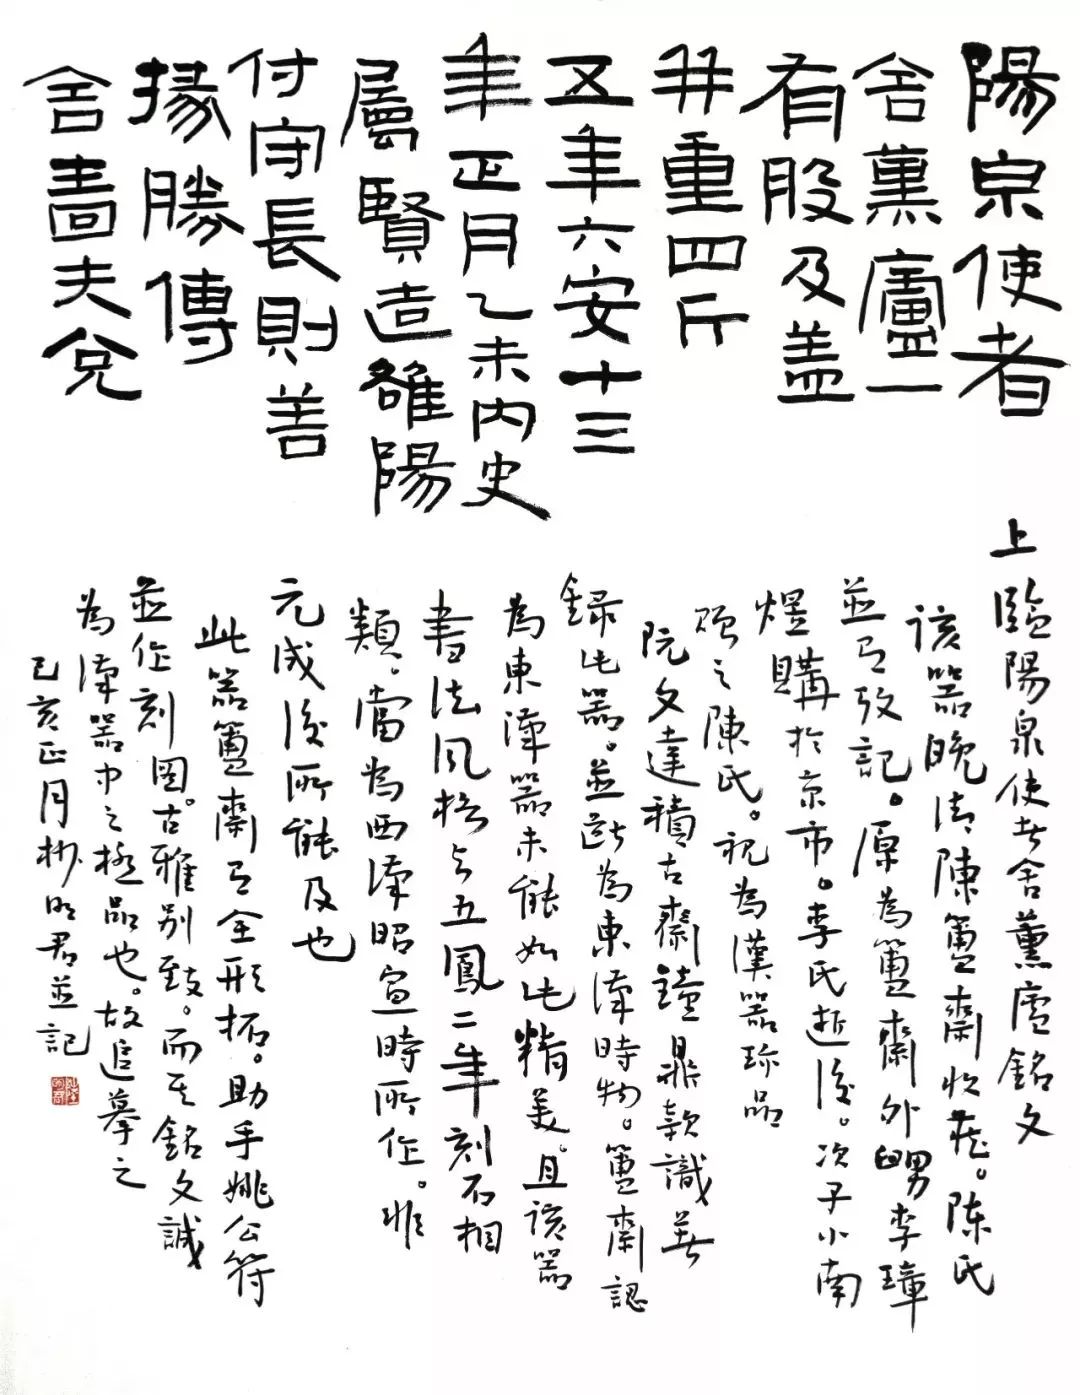 陽泉使者
舍熏廬一
有股及盖
并重四斤
五年六安十三
年正月乙未内史
屬賢造雒陽
付守長則善
掾勝傳
舍嗇夫兌
上臨陽泉使者舍薰廬銘文
該器晚清陳簠齋收藏。陈氏
並有攷記。原為簠齋外舅李璋
煜購於京市。李氏逝後。次子小南
贻之陳氏。視為漢器珍品
阮文達積古齋鐘鼎款識著
録此器。並断為東漢時物。簠齋認
為東漢器未能如此精美。且該器
書法風格与五鳳二年刻石相
類。當為西漢昭宣時所作。非
元成後所能及也
此器簠齋有全形拓。助手姚公符
並作刻圖。古雅别致。而其銘文誠
為漢器中之極品也。故追摹之
己亥正月杪明君並記